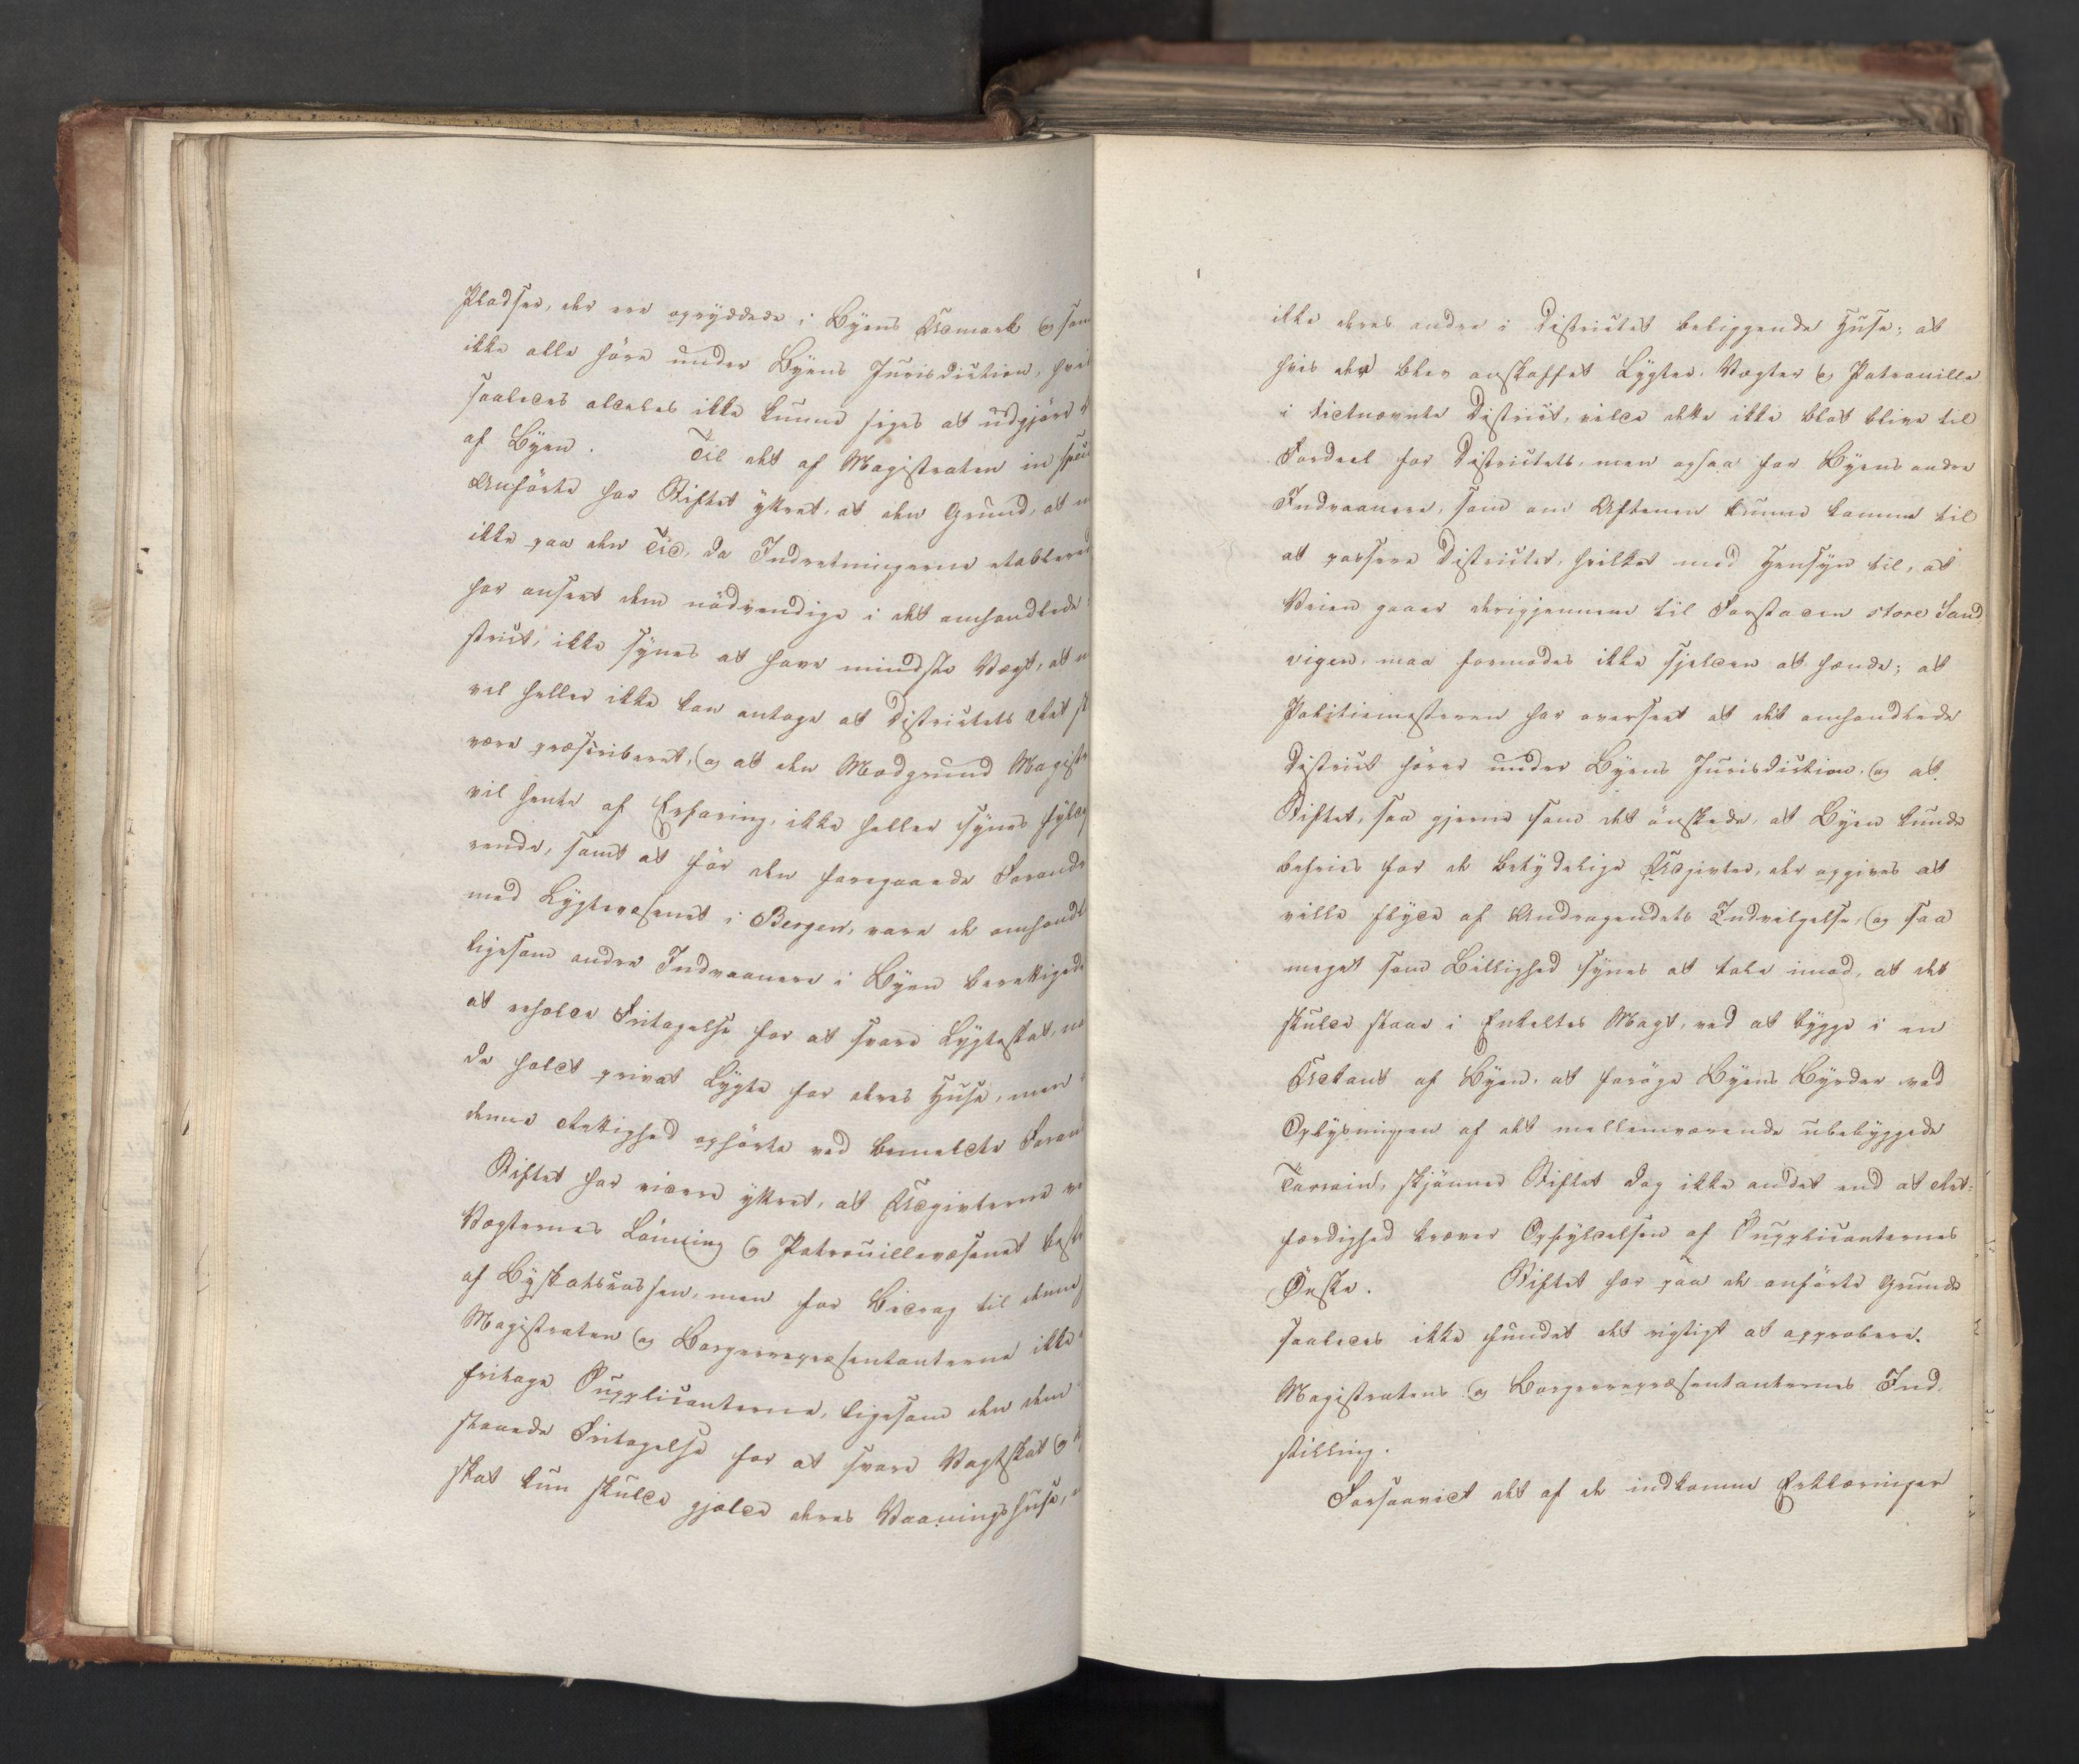 Pladser, der ere opryddede i Byens Udmark og som
ikke alle høre under Byens Jurisdiction, hvil
saaledes aldeles ikke kunne siges at udgjøre
af Byen. Til det af Magistraten in speci
Anførte har Stiftet yttret, at den Grund, at
ikke paa den Tid, da Indretningerne etablered
har anseet dem nødvendige i det omhandlede
strict, ikke synes at have mindste Vægt, at
vel heller ikke kan antage at Districtets Ret
være præscriberet, og at den Modgrund Magistr
vil hente af Erfaring, ikke heller synes fyldg
rende, samt at før den foregaaede Forandr
med Lygtevæsenet i Bergen, vare de omhandl
ligesom andre Indvaanere i Byen berettigede
at erholde Fritagelse for at svare Lygteskat,
de holdt privat Lygte for deres Huse, men
denne Rettighed ophørte ved bemeldte Foran
Stiftet har videre yttret, at Udgivterne
Vægternes Lønning og Patrouillevæsenet best
af Byskatscassen, men for Bidrag til denne
Magistraten og Borgerrepræsentanterne ikke
fritage Supplicanterne, ligesom den dem
staaede Fritagelse for at svare Vagtskat og
skat kun skulde gjælde deres Vaaningshuse,
ikke deres andre i Districtet beliggende Huse; at
hvis der blev anskaffet Lygter, Vægter og Patrouille
i tidtnævnte District, vilde dette ikke blot blive til
Fordeel for Districtets, men ogsaa for Byens andre
Indvaanere, som om Aftenen kunne komme til
at passere Districtet, hvilket med Hensyn til, at
Veien gaaer derigjennem til Forstaden store Sand
vigen, maa formodes ikke sjelden at hænde; at
Politiemesteren har overseet at det omhandlede
District hører under Byens Jurisdiction, og at
Stiftet, saa gjerne som det ønskede, at Byen kunde
befries for de betydelige Udgivter, der opgives at
ville flyde af Andragendets Indvilgelse, og saa
meget som Billighed synes at tale imod, at det
skulde staae i Enkeltes Magt, ved at bygge i en
Udkant af Byen, at forøge Byens Byrder ved
Oplysningen af det mellemværende ubebyggede
Terrain, skjønner Stiftet dog ikke andet end at Ret-
færdighed kræver Opfyldelsen af Supplicanternes
Ønske. Stiftet har paa de anførte Grunde
saaledes ikke fundet det rigtigt at approbere.
Magistratens og Borgerrepræsentanternes Ind.
stilling.
Forsaavidt det af de indkomne Erklæringer